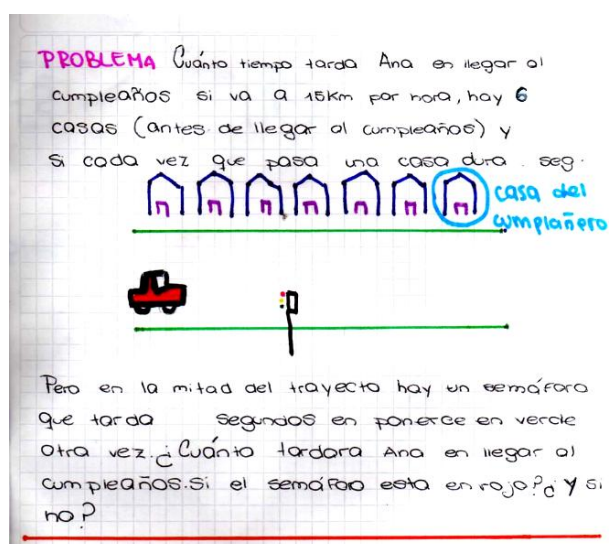 PROBLEMA Cuánto tiempo tarda Ana en llegar al
cumpleaños si va a 15km por hora, hay 6
casas (antes de llegar al cumpleaños) y
si cada vez que pasa una casa dura seg.
casa del
cumplañero
Pero en la mitad del trayecto hay un semáforo
que tarda segundos en ponerce en verde
otra vez. ¿Cuánto tardara Ana en llegar al
cumpleaños. Si el semáforo esta en rojo? ¿Y si
no?